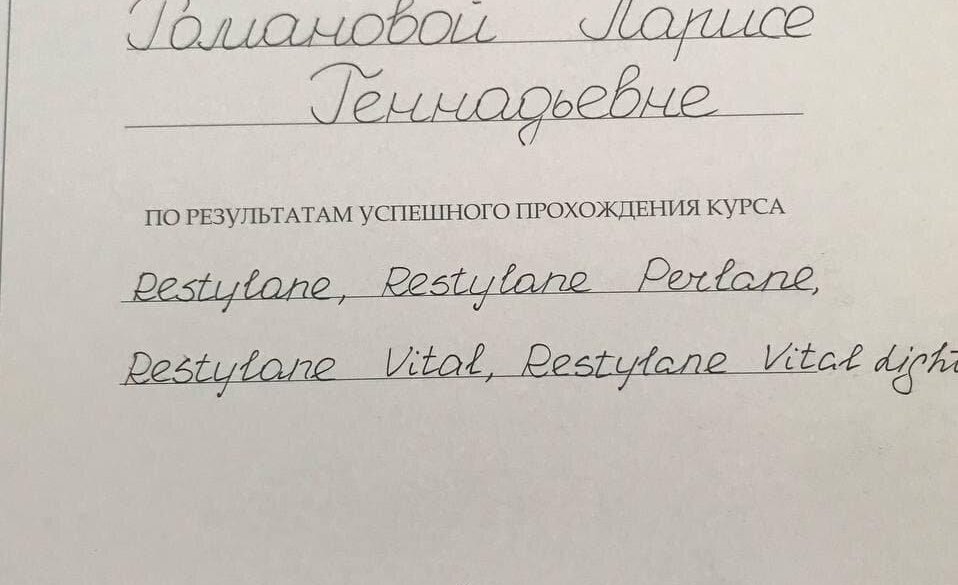 Романовой Ларисе
Геннадьевне
ПО РЕЗУЛЬТАТАМ УСПЕШНОГО ПРОХОЖДЕНИЯ КУРСА
Restylane, Restylane Perlane,
Restylane Vital, Restylane Vital